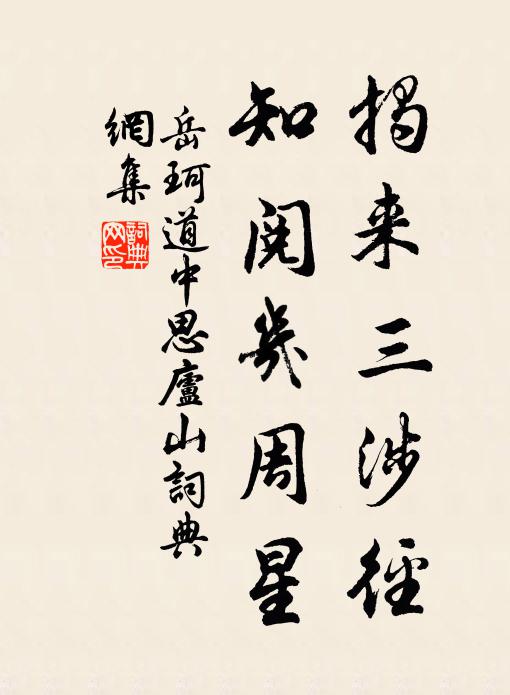 揭来三涉径
知阅几周星
岳珂道中思廬山詞典
網集
詞典
网印